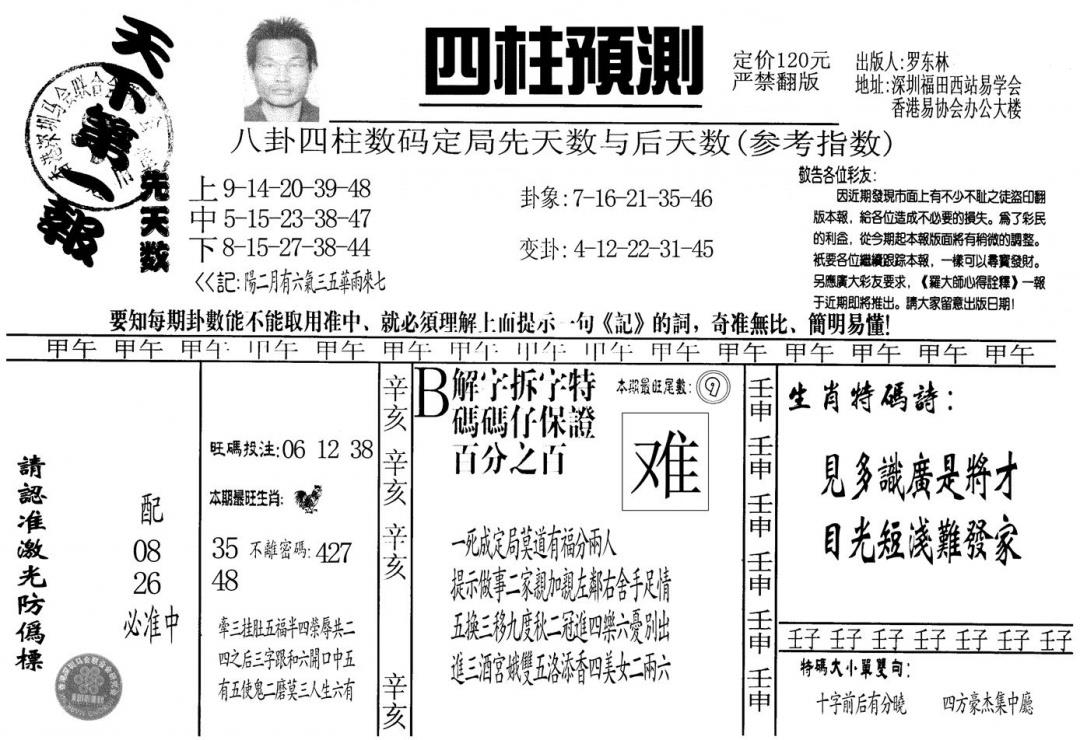 天下第一報
四柱預測
定价120元
严禁翻版
出版人:罗东林
地址:深圳福田西站易学会
香港易协会办公大楼
八卦四柱数码定局先天数与后天数(参考指数)
先天数
上 9-14-20-39-48
中 5-15-23-38-47
下 8-15-27-38-44
卦象:7-16-21-35-46
变卦:4-12-22-31-45
<<記:陽二月有六氣三五華雨來七
敬告各位彩友:
因近期發現市面上有不少不耻之徒盜印翻
版本報,給各位造成不必要的損失。爲了彩民
的利益,從今期起本報版面將有稍微的調整。
衹要各位繼續跟踪本報,一樣可以尋寶發財。
另應廣大彩友要求,《羅大師心得詮釋》一報
于近期即將推出。請大家留意出版日期!
要知每期卦數能不能取用准中、就必須理解上面提示一句《記》的詞,奇准無比、簡明易懂!
甲午 甲午 甲午 甲午 甲午 甲午 甲午 甲午 甲午 甲午 甲午 甲午 甲午 甲午 甲午
請認准激光防僞標
配
08
26
必准中
旺碼投注:06 12 38
本期最旺生肖:
35 不離密碼:427
48
牽三挂肚五福半四榮辱共二
四之后三字跟和六開口中五
有五使鬼二磨莫三人生六有
辛亥 辛亥 辛亥 辛亥
B 解字拆字特
碼碼仔保證
百分之百
本期最旺尾數: 9
难
一死成定局莫道有福分兩人
提示做事二家親加親左鄰右舍手足情
五換三移九度秋二冠進四樂六憂别出
進三酒宮娥雙五洛添香四美女二兩六
壬申 壬申 壬申 壬申 壬申 壬申
生肖特碼詩:
見多識廣是將才
目光短淺難發家
壬子 壬子 壬子 壬子 壬子 壬子 壬子
特碼大小單雙句:
十字前后有分曉 四方豪杰集中廳